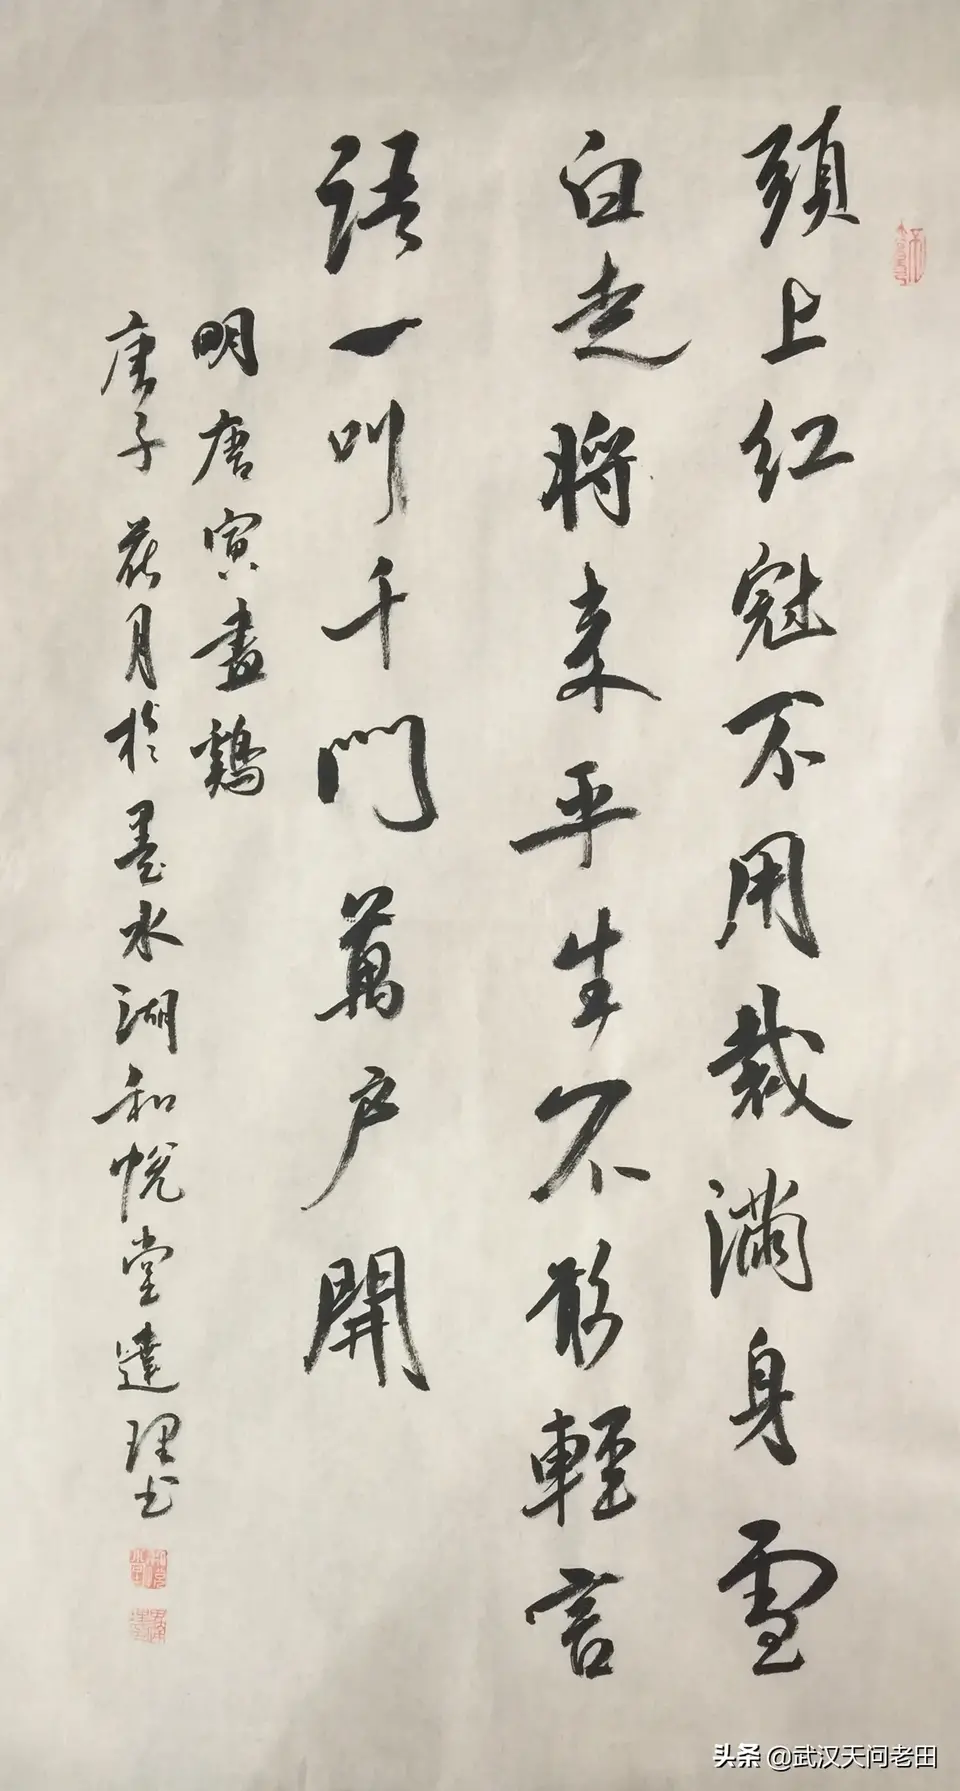 頭上紅冠不用裁滿身雪
白走將來平生不敢輕言
語一叫千門萬户開
明唐寅畫鷄
庚子花月於墨水湖和悅堂達理书
头条 @武汉天问老田